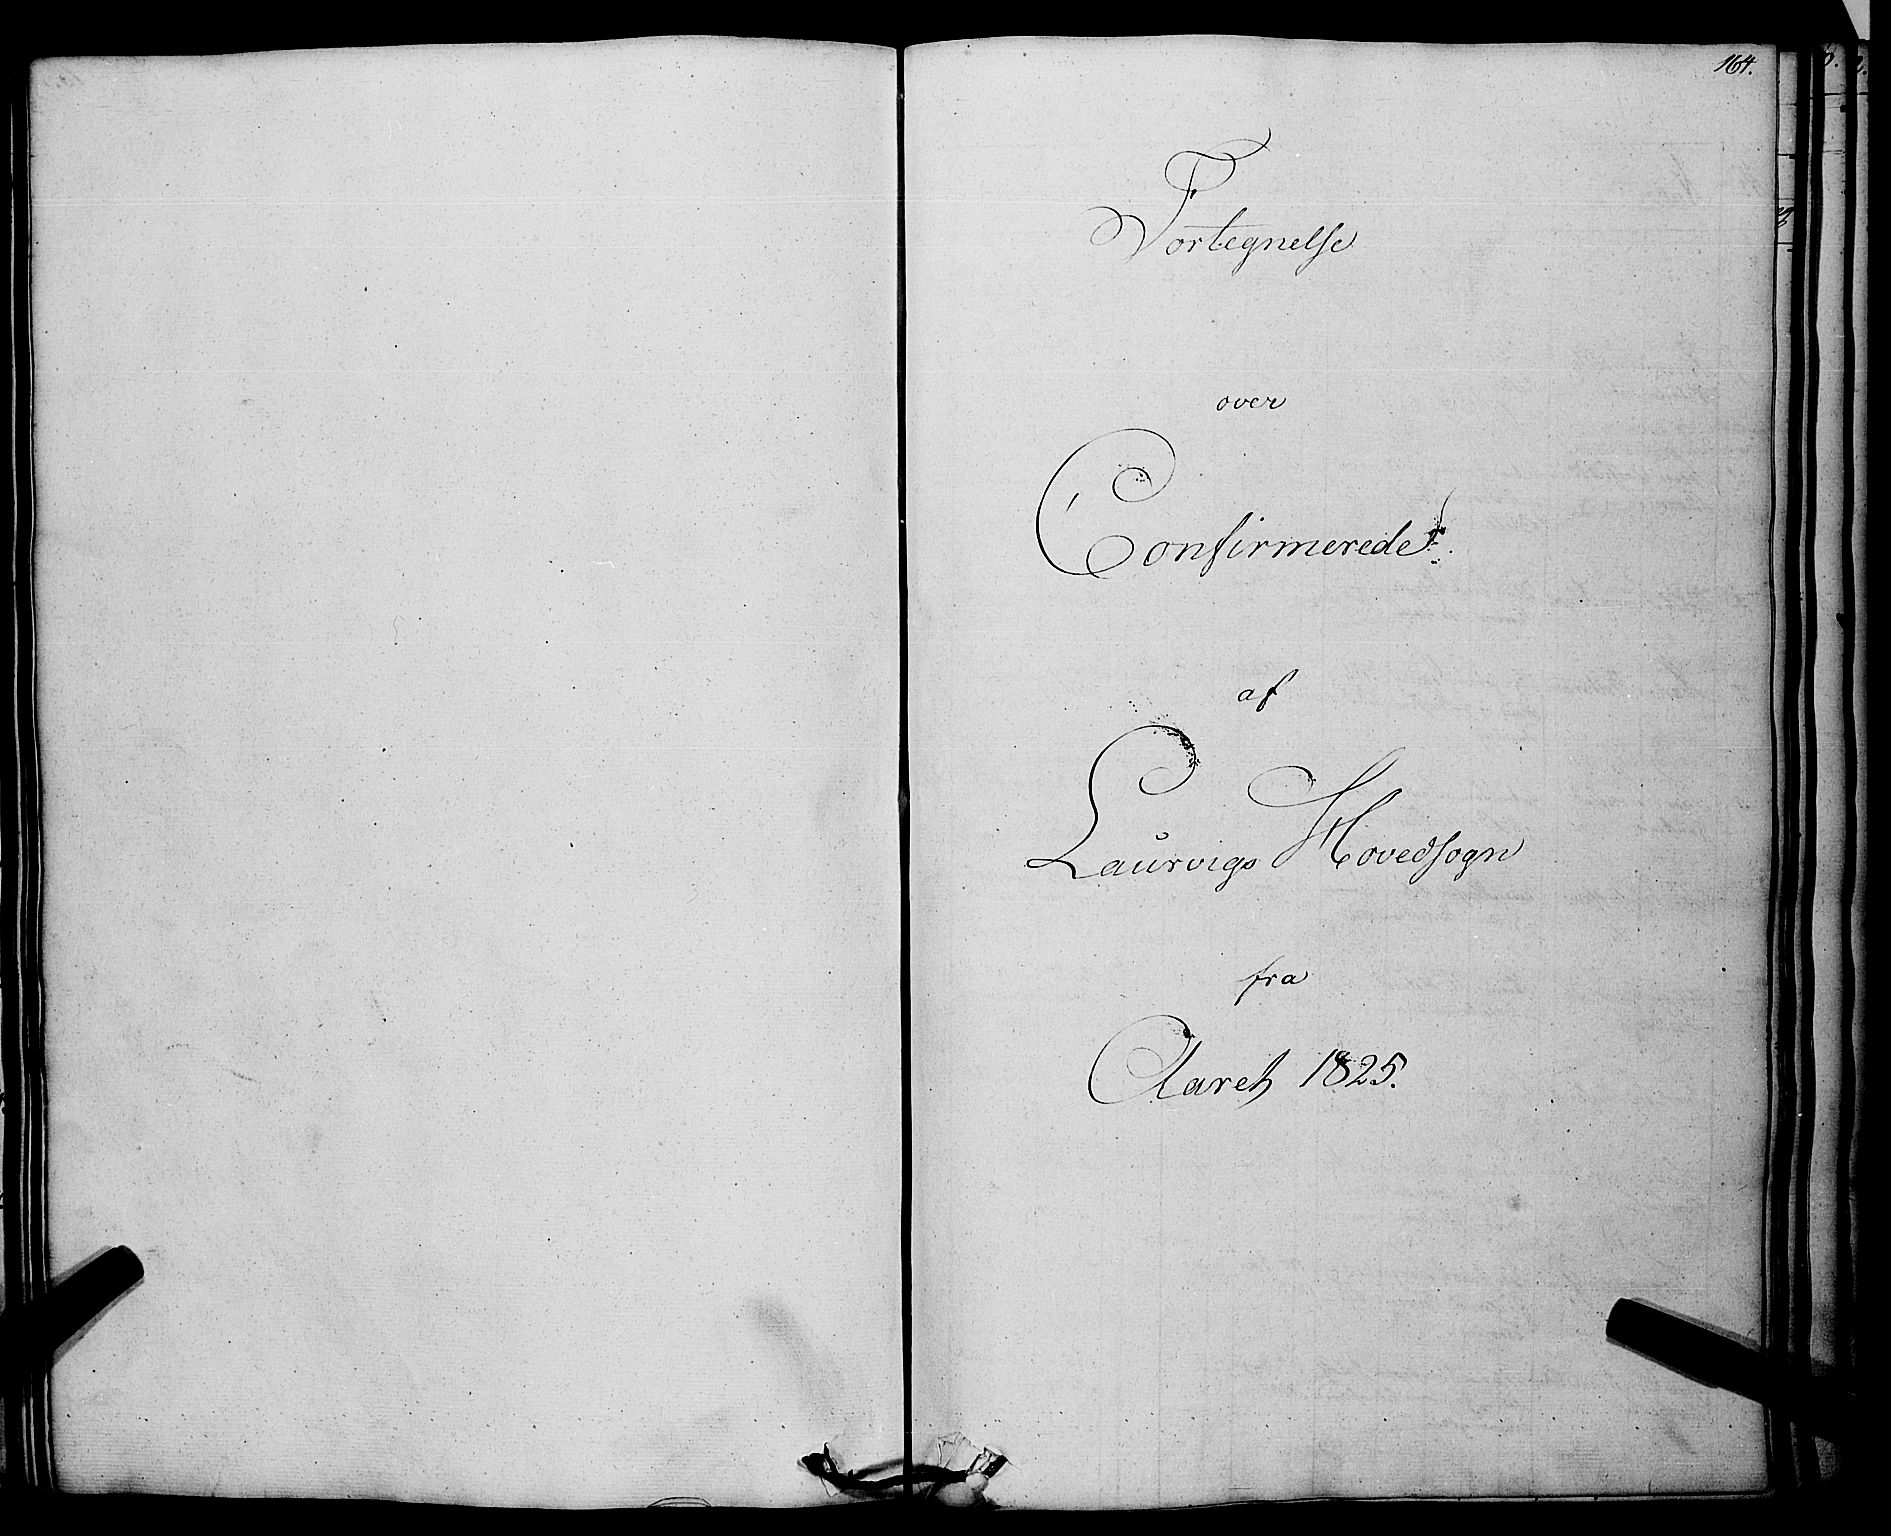 164.
Fortegnelse
over
Confirmerede
af
Laurvigs Hovedsogn
fra
Aaret 1825.